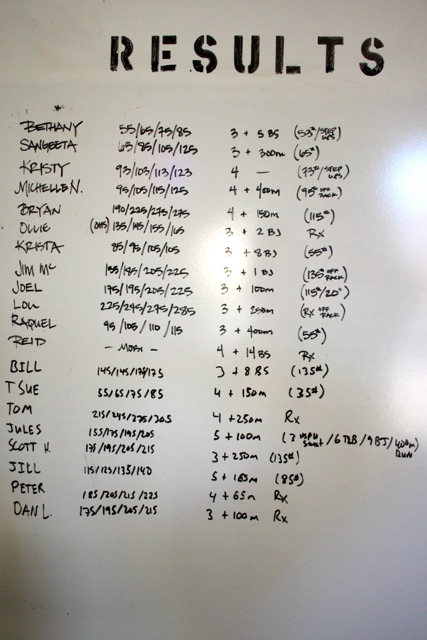 RESULTS
BETHANY 55/65/75/85 3 + 5 BS (53#/STEP UPS)
SANGEETA 65/85/105/125 3 + 300m (65#)
KRISTY 93/103/113/123 4 — (73#/STEP UPS)
MICHELLE N. 95/105/115/125 4 + 400m (95# OFF RACK)
BRYAN 190/225/275/275 4 + 150m (115#)
OLLIE (OHS) 135/145/155/165 3 + 2 BJ Rx
KRISTA 85/95/105/105 3 + 8BJ (55#)
JIM MC 155/185/205/225 3 + 1 BJ (135# OFF RACK)
JOEL 175/195/205/225 3 + 100m (115#/20")
LOU 225/245/275/285 3 + 250m (Rx OFF RACK)
RAQUEL 95/105/110/115 3 + 400m (55#)
REID — MOBI — 4 + 14 BS Rx
BILL 145/145/175/175 3 + 8 BS (135#)
T SUE 55/65/75/85 4 + 150m (35#)
TOM 215/245/275/305 4 + 250m Rx
JULES 155/175/195/205 5 + 100m (3 HSPU / 6 T2B / 9 BJ / 400m RUN)
SCOTT H. 175/195/205/215 3 + 250m (135#)
JILL 115/125/135/140 5 + 165m (85#)
PETER 185/205/215/225 4 + 65m Rx
DAN L. 175/195/205/215 3 + 100m Rx